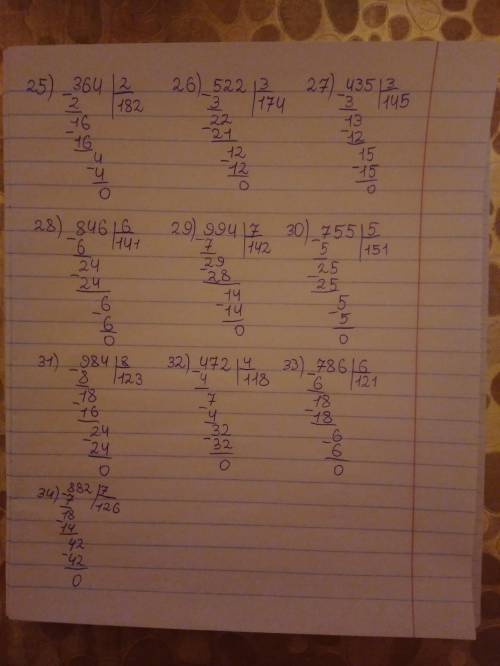 25) -364 | 2   26) -522 | 3   27) -435 | 3
2 | 182   3 | 174   3 | 145
-16   -22   -13
16   21   12
-4   -12   -15
4   12   15
0   0   0
28) -846 | 6   29) -994 | 7   30) -755 | 5
6 | 141   7 | 142   5 | 151
-24   -29   -25
24   28   25
-6   -14   -5
6   14   5
0   0   0
31) -984 | 8   32) -472 | 4   33) -786 | 6
8 | 123   4 | 118   6 | 121
-18   -7   -18
16   4   18
-24   -32   -6
24   32   6
0   0   0
34) -882 | 7
7 | 126
-18
14
-42
42
0